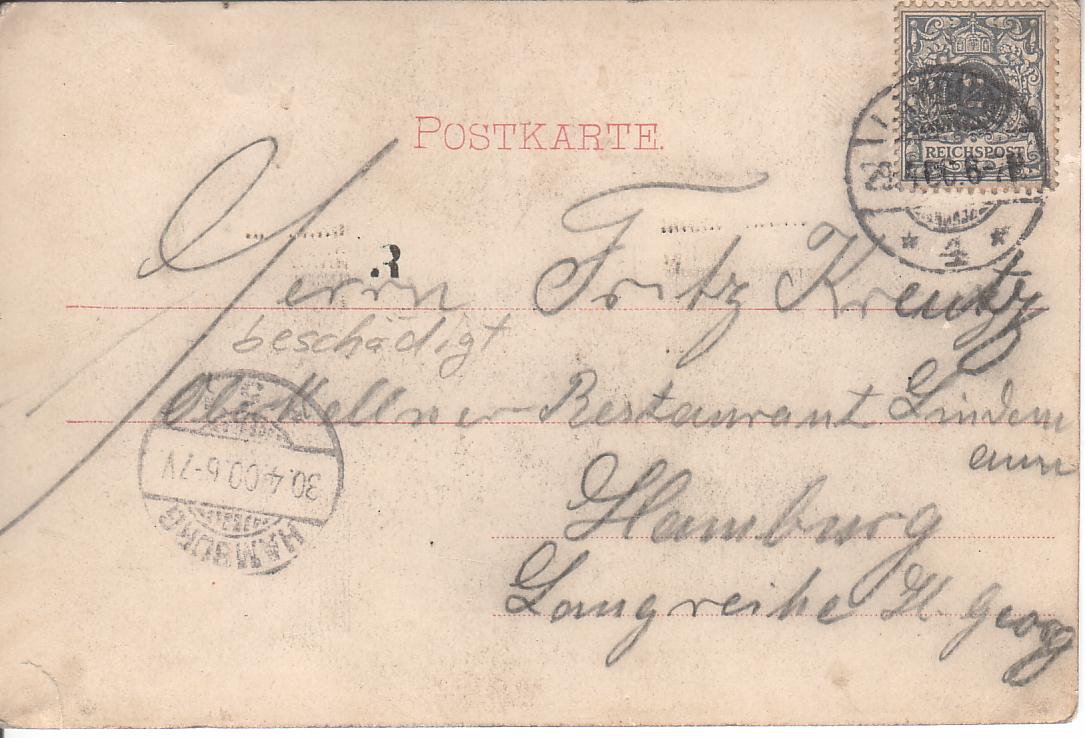 POSTKARTE.
REICHSPOST
4
3
Herrn Fritz Kreutz
beschädigt
Ob. Kellner Restaurant Lindem
ann
Hamburg
Langreihe St. Georg
30.4.00.6-7V
HAMBURG